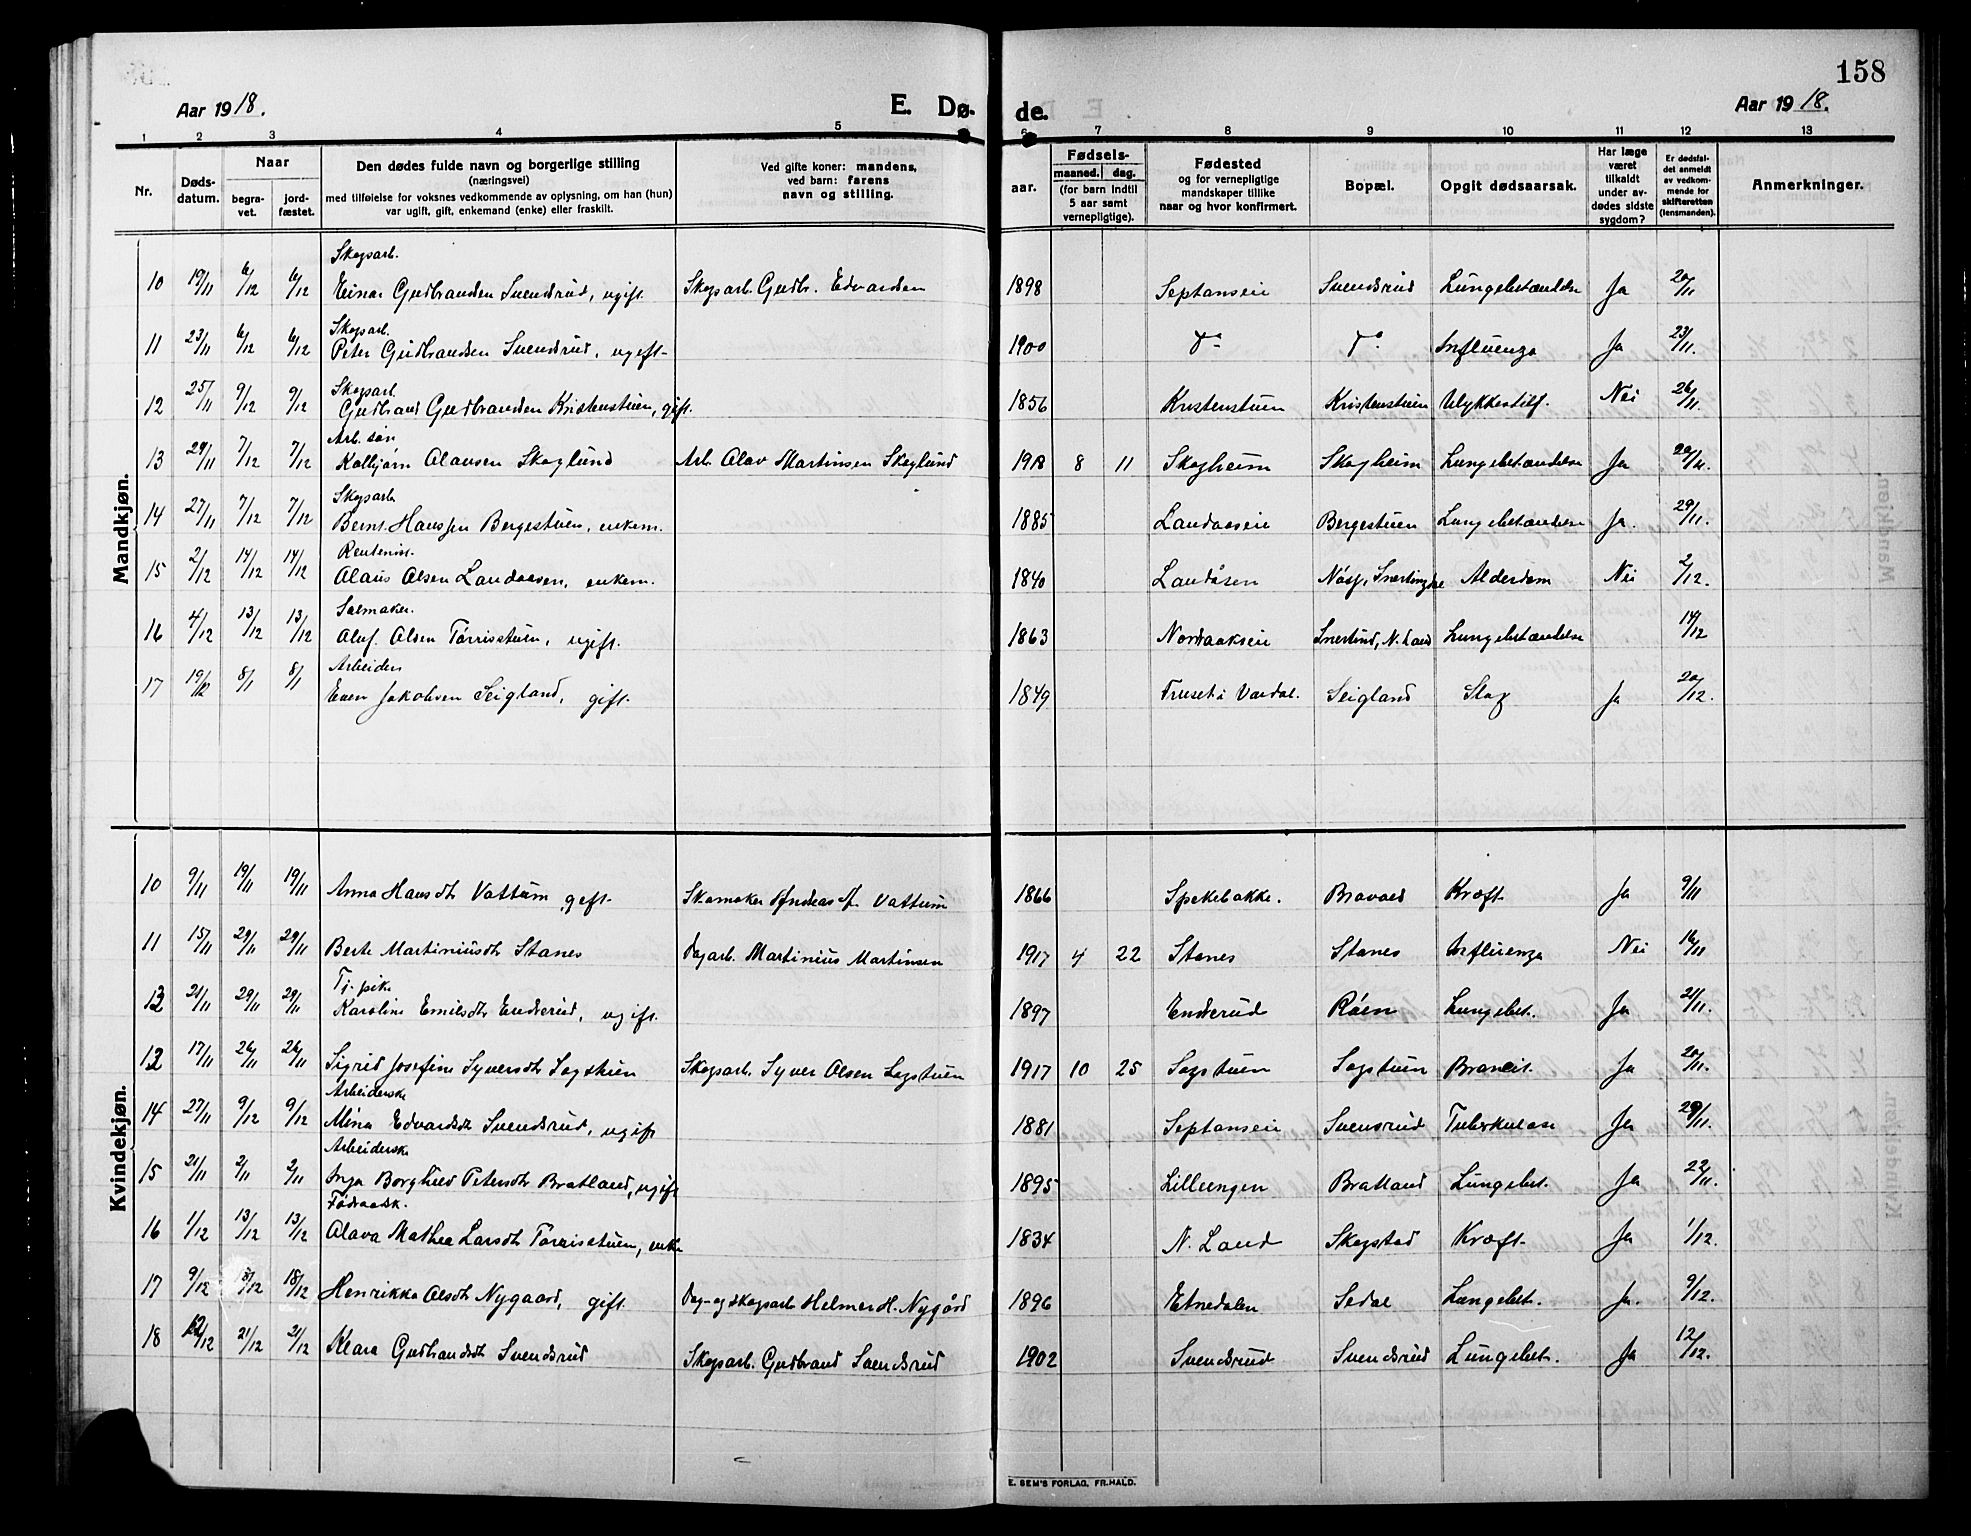 158
Aar 1918.
E. Dø-
de.
Aar 1918.
1 2 3 4 5 6 7 8 9 10 11 12 13
Nr.
Døds-
datum.
Naar
begra-
vet.
jord-
fæstet.
Den dødes fulde navn og borgerlige stilling
(næringsvei)
med tilføielse for voksnes vedkommende av oplysning, om han (hun)
var ugift, gift, enkemand (enke) eller fraskilt.
Ved gifte koner: mandens,
ved barn: farens
navn og stilling.
aar.
Fødsels-
maaned. dag.
(for barn indtil
5 aar samt
vernepligtige).
Fødested
og for vernepligtige
mandskaper tillike
naar og hvor konfirmert.
Bopæl.
Opgit dødsaarsak.
Har læge
været
tilkaldt
under av-
dødes sidste
sygdom?
Er dødsfal-
det anmeldt
av vedkom-
mende for
skifteretten
(lensmanden).
Anmerkninger.
Mandkjøn.
Skogsarb.
10 19/11 6/12 6/12 Einar Gudbrandsen Svendsrud, ugift. Skogsarb. Gudbr. Edvardsen 1898 Septanseie Svendsrud Lungebetændelse Ja 20/11
Skogsarb.
11 23/11 6/12 6/12 Peter Gudbrandsen Svendsrud, ugift. 1900 Do Do Influenza Ja 23/11.
Skogsarb.
12 25/11 9/12 9/12 Gudbrand Gudbrandsen Kristenstuen, gift. 1856 Kristenstuen Kristenstuen Ulykkestilf. Nei 26/11.
Arb. søn
13 29/11 7/12 7/12 Kolbjørn Olavsen Skoglund Arb. Olav Martinsen Skoglund 1918 8 11 Skogheim Skogheim Lungebetændelse Ja 29/11.
Skogsarb
14 27/11 7/12 7/12 Bernt Hanssen Bergestuen, enkem. 1885 Landaaseie Bergestuen Lungebetændelse Ja. 29/11.
Rentenist.
15 2/12 14/12 14/12 Olaus Olsen Landaasen, enkem. 1840 Landåsen Alderdom Nei 2/12.
Salmaker.
16 4/12 13/12 13/12 Oluf Olsen Tørrisstuen, ugift. 1863 Nordaakseie N. Land Lungebetændelse 14/12
Arbeider
17 19/12 8/1 8/1 Even Jakobsen Seigland, gift. 1849 Truset i Vardal. Seigland Slag Ja 20/12.
Kvindekjøn.
10 9/11 19/11 19/11 Anna Hansdt Vattum gift. Skomaker Andreas Vattum 1866 Spekebakke. Kræft. Ja 9/11
11 15/11 29/11 29/11 Berte Martiniusdt Stanes Dagarb. Martinius Martinsen 1917 4 22 Stanes Stanes Influenza Nei 16/11
Tj. pike
12 21/11 29/11 29/11 Karoline Emilsdt Enderud, ugift. 1897 Enderud Røen Lungebet. Ja 21/11.
13 17/11 26/11 26/11 Sigrid Josefine Syversdt Sagstuen Skogsarb. Syver Olsen Sagstuen 1917 10 25 Sagstuen Sagstuen Broncit. Ja 20/11.
Arbeiderske
14 27/11 9/12 9/12 Mina Edvardsdt Svendsrud, ugift 1881 Septanseie Svensrud Tuberkulose Ja 29/11.
Arbeiderske
15 21/11 2/11 2/11 Inga Borghild Petersdt Bratland, ugift 1895 Lilleengen Bratland Lungebet. Ja 22/11.
Føderaadsk.
16 1/12 13/12 13/12 Olava Mathea Larsdt Tørrisstuen, enke 1834 N. Land Skogstad Kræft. Ja 1/12.
17 9/12 18/12 18/12 Henrikka Olsdt Nygaard, gift. Dag- og skogsarb Helmer H. Nygård 1896 Etnedalen Lungebet. Ja. 9/12.
18 12/12 21/12 21/12 Klara Gudbrandsdt Svendsrud Skogsarb. Gudbrand Svendsrud 1902 Svendsrud Svendsrud Lungebet. Ja 12/12.
E. SEM'S FORLAG, FR.HALD.